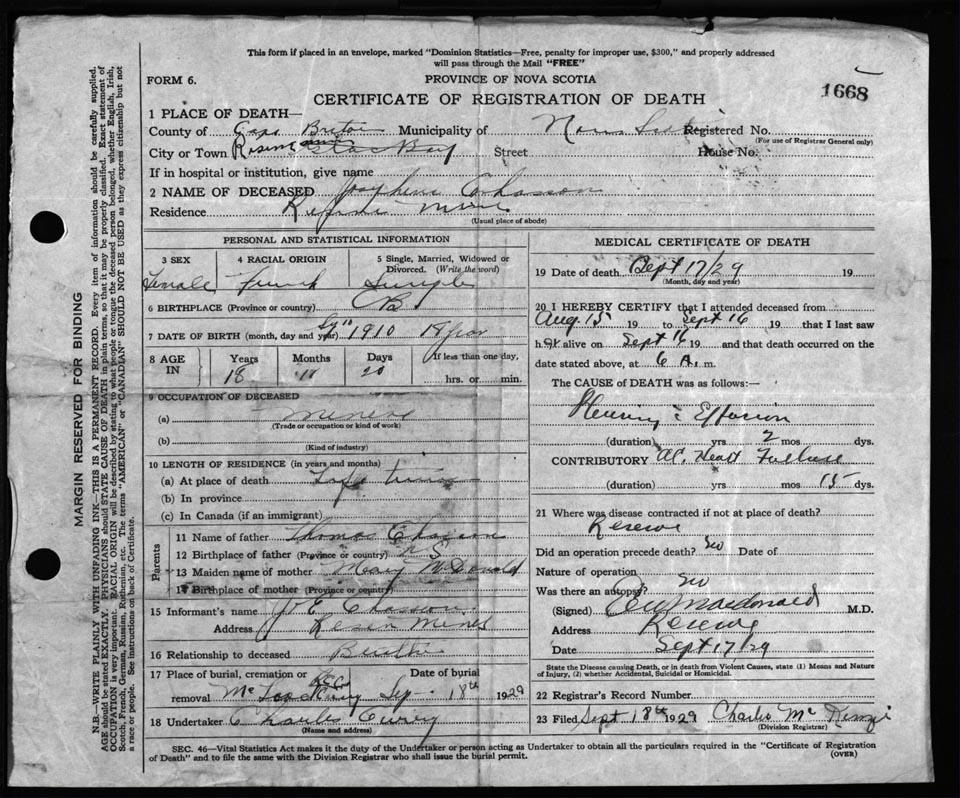 This form if placed in an envelope, marked "Dominion Statistics—Free, penalty for improper use, $300," and properly addressed
will pass through the Mail "FREE"
FORM 6.
PROVINCE OF NOVA SCOTIA
1668
CERTIFICATE OF REGISTRATION OF DEATH
1 PLACE OF DEATH—
County of Cape Breton Municipality of Registered No.
(For use of Registrar General only)
City or Town Glace Bay Street House No.
If in hospital or institution, give name
2 NAME OF DECEASED Chasson
Residence Reserve Mines
(Usual place of abode)
PERSONAL AND STATISTICAL INFORMATION
3 SEX 4 RACIAL ORIGIN 5 Single, Married, Widowed or
Divorced. (Write the word)
Female French Single
6 BIRTHPLACE (Province or country) C B
7 DATE OF BIRTH (month, day and year) 1910 18 year
8 AGE IN Years Months Days If less than one day,
18 11 20 hrs. or min.
9 OCCUPATION OF DECEASED
(a)
(Trade or occupation or kind of work)
(b)
(Kind of industry)
10 LENGTH OF RESIDENCE (in years and months)
(a) At place of death Life time
(b) In province
(c) In Canada (if an immigrant)
Parents
11 Name of father Thomas Chasson
12 Birthplace of father (Province or country) N S
13 Maiden name of mother Mary McDonald
14 Birthplace of mother (Province or country)
15 Informant's name Chasson
Address Mines
16 Relationship to deceased
17 Place of burial, cremation or removal Date of burial
Sep 18th 1929
18 Undertaker Charles Curry
(Name and address)
MEDICAL CERTIFICATE OF DEATH
19 Date of death Sept 17/29 19
(Month, day and year)
20 I HEREBY CERTIFY that I attended deceased from
Aug 15 19 to Sept 16 19 that I last saw
h er alive on Sept 16 19 and that death occurred on the
date stated above, at 6 A. m.
The CAUSE of DEATH was as follows:—
Pleurisy c Effusion
(duration) yrs 2 mos dys.
CONTRIBUTORY Ac. Heart Failure
(duration) yrs mos 15 dys.
21 Where was disease contracted if not at place of death?
Reserve
Did an operation precede death? no Date of
Nature of operation
Was there an autopsy? no
(Signed) Macdonald M.D.
Address Reserve
Date Sept 17/29
State the Disease causing Death, or in death from Violent Causes, state (1) Means and Nature
of Injury, (2) whether Accidental, Suicidal or Homicidal.
22 Registrar's Record Number
23 Filed Sept 18th 1929 Charles McKenzie
(Division Registrar)
SEC. 46—Vital Statistics Act makes it the duty of the Undertaker or person acting as Undertaker to obtain all the particulars required in the "Certificate of Registration
of Death" and to file the same with the Division Registrar who shall issue the burial permit.
(OVER)
MARGIN RESERVED FOR BINDING
N.B.—WRITE PLAINLY WITH UNFADING INK—THIS IS A PERMANENT RECORD. Every item of information should be carefully supplied.
AGE should be stated EXACTLY. PHYSICIANS should STATE CAUSE OF DEATH in plain terms, so that it may be properly classified. Exact statement of
OCCUPATION is very important. RACIAL ORIGIN will be described by stating to what people or tongue the deceased person belonged, whether English, Irish,
Scotch, French, German, Russian, Ruthenian, etc. The terms "AMERICAN" or "CANADIAN" SHOULD NOT BE USED as they express citizenship but not
a race or people. See instructions on back of Certificate.